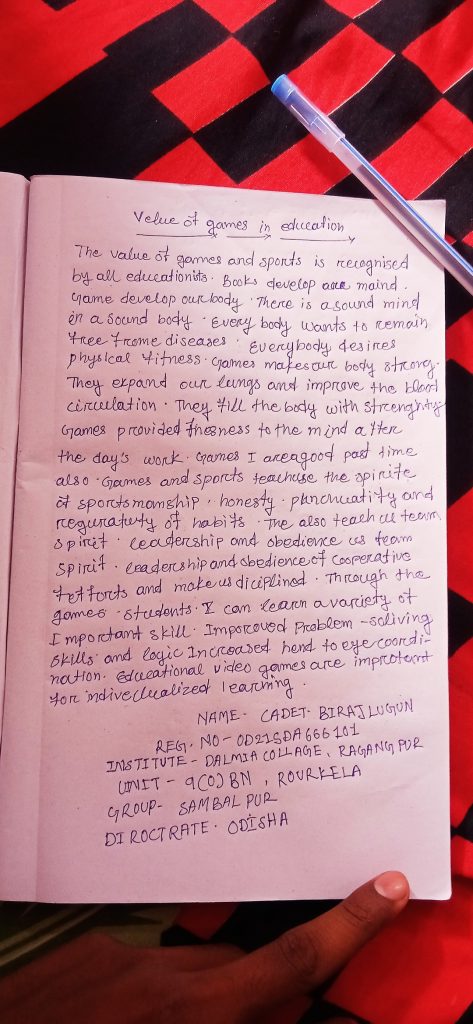 Velue of games in education
The value of games and sports is recognised
by all educationists. Books develop our maind.
Game develop our body. There is a sound mind
in a sound body. Every body wants to remain
free frome diseases. Everybody desires
physical fitness. Games makes our body strong.
They expand our lungs and improve the blood
circulation. They fill the body with
Games provided freshness to the mind after
the day's work. Games I are a good past time
also. Games and sports teach use the spirite
of sportsmanship. honesty. and
of habits. The also teach us team
spirit. leadership and obedience us team
spirit. leadership and obedience of Cooperative
and make us diciplined. Through the
games. students. I can learn a variety of
Important skill. Improved Problem-soliving
skills and logic Increased hend to eye coordi-
nation. Educational video games are
for learning.
NAME- CADET. BIRAJ LUGUN
REG. NO- OD21SDA666101
INSTITUTE- DALMIA COLLAGE, RAGANG PUR
UNIT- 9(O) BN, ROURKELA
GROUP- SAMBAL PUR
DIROCTRATE. ODISHA